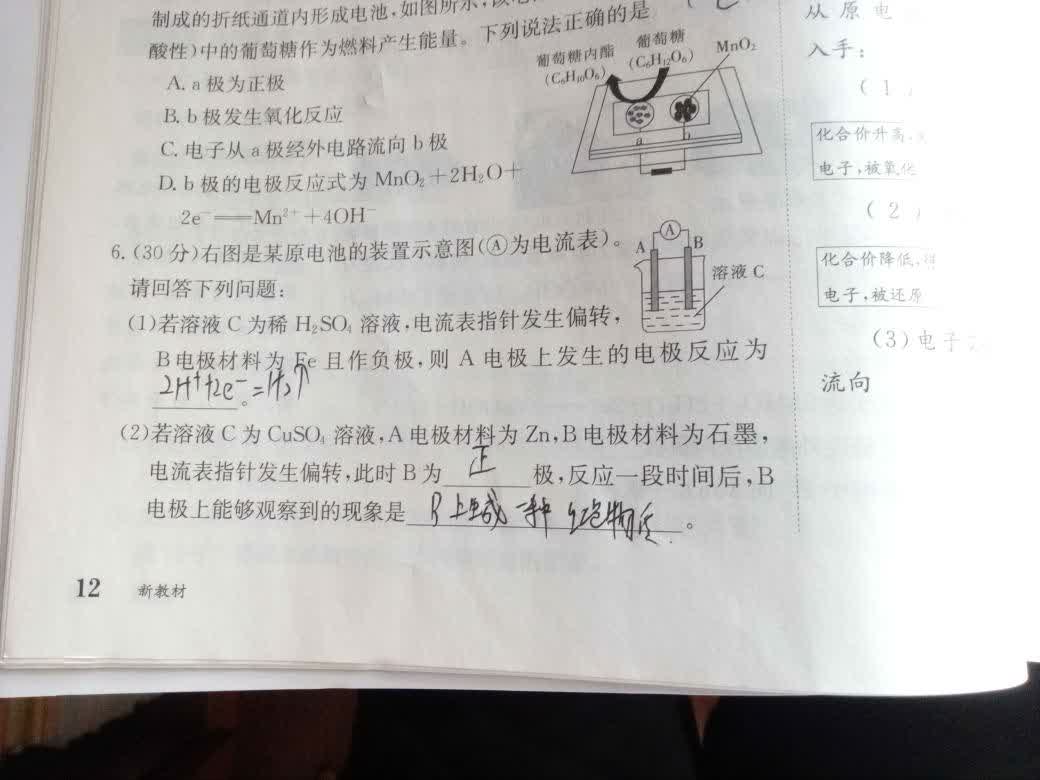 制成的折纸通道内形成电池,如图所示,该电
酸性)中的葡萄糖作为燃料产生能量。下列说法正确的是
A. a 极为正极
B. b 极发生氧化反应
C. 电子从 a 极经外电路流向 b 极
D. b 极的电极反应式为 MnO₂+2H₂O+
2e⁻══Mn²⁺+4OH⁻
葡萄糖内酯
(C₆H₁₀O₆)
葡萄糖
(C₆H₁₂O₆)
MnO₂
a
b
6. (30 分)右图是某原电池的装置示意图(Ⓐ为电流表)。
请回答下列问题:
A
A
B
溶液 C
(1)若溶液 C 为稀 H₂SO₄ 溶液,电流表指针发生偏转,
B 电极材料为 Fe 且作负极,则 A 电极上发生的电极反应为
2H⁺+2e⁻=H₂↑。
(2)若溶液 C 为 CuSO₄ 溶液,A 电极材料为 Zn,B 电极材料为石墨,
电流表指针发生偏转,此时 B 为 正 极,反应一段时间后,B
电极上能够观察到的现象是 B上生成一种红色物质。
12 新教材
从原电
入手:
(1)
化合价升高,
电子,被氧化
(2)
化合价降低,得
电子,被还原
(3)电子
流向